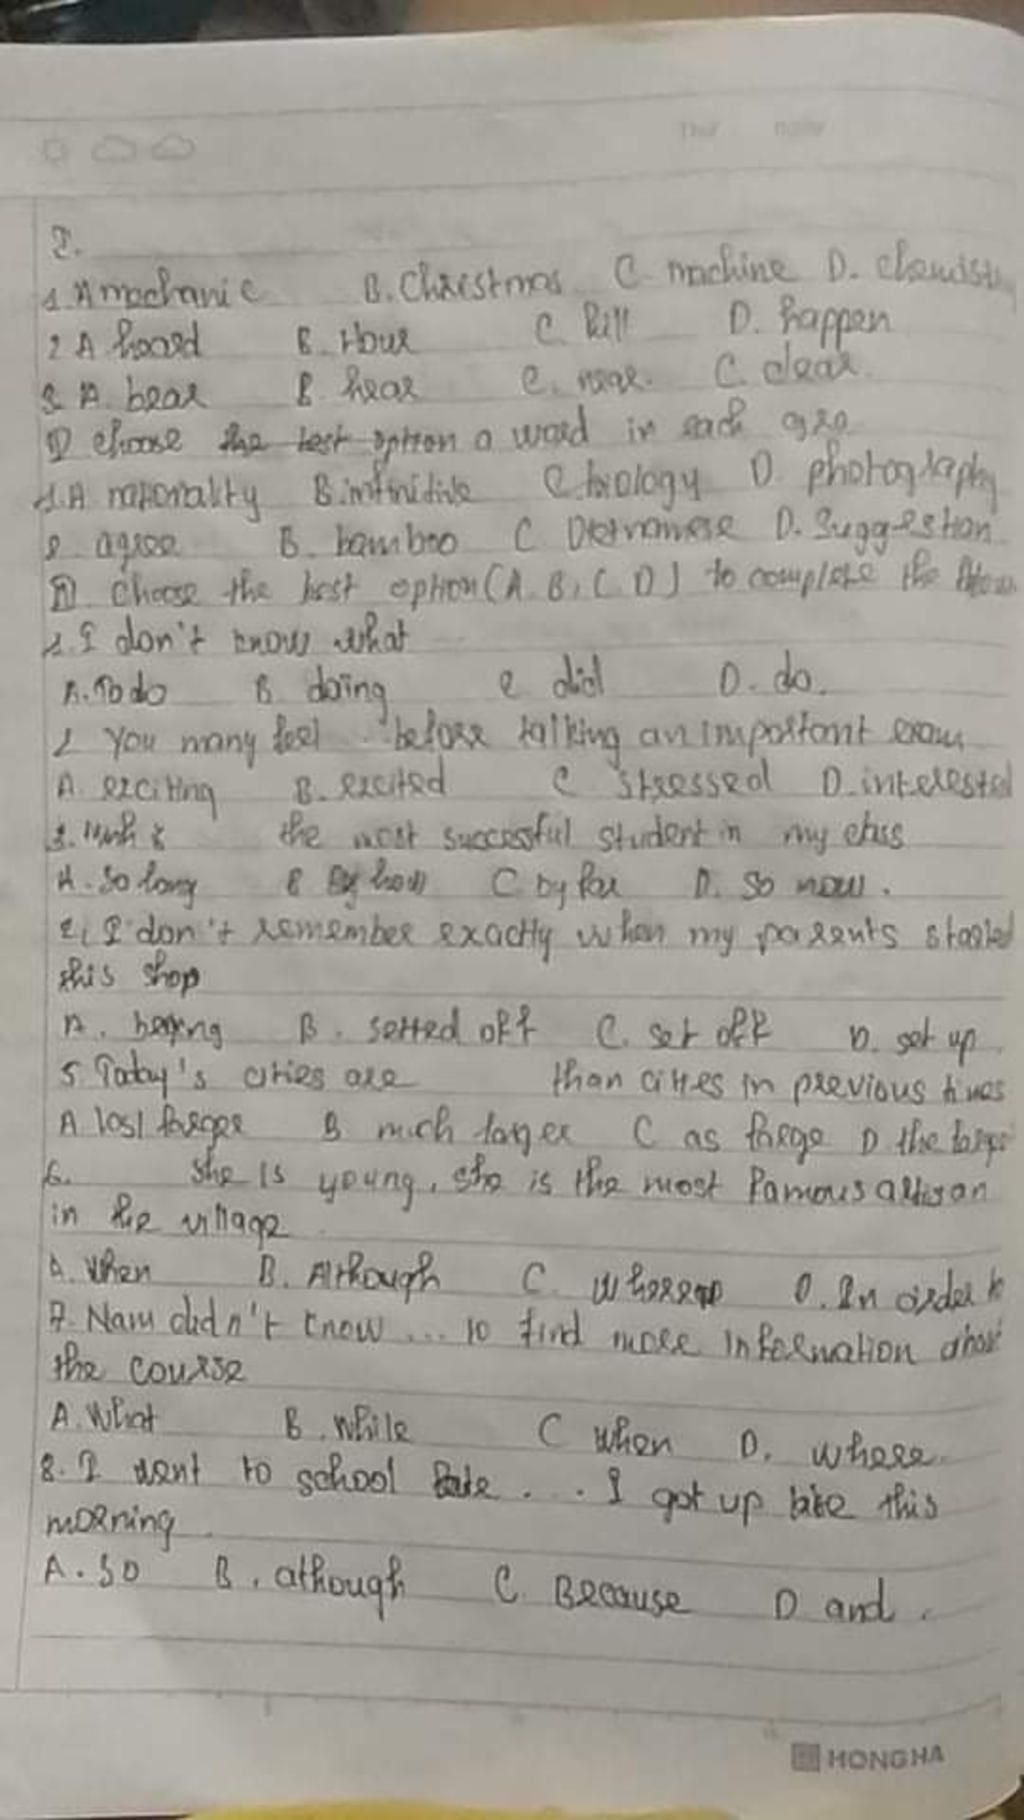 Thứ ngày
I.
1. A mechanic B. Christmas C. machine D. chemist
2 A hoard B. Hour C. hill D. happen
3. A. bear B. hear C. near. C. clear.
II choose the best option a word in each
1. A nationality B. infinitive C biology D. photography
2. agree B. bamboo C Vietnamese D. Suggestion
III. Choose the best option (A. B, C D) to complete the
1. I don't know what
A. To do B. doing C did D. do.
2 You many feel ... before talking an important exam
A. exciting B. excited C stressed D. interested
3. the most successful student in my class
A. So long B By how C by far D. so now.
4. I don't remember exactly when my parents started
this shop
A. B. setted off C. set off D. set up
5. Today's cities are than cities in previous times
A larger B much larger C as large D the larger
6. she is young, she is the most famous artisan
in the village
A. When B. Although C. D. In order to
7. Nam didn't know ... to find more information about
the course
A. What B. While C when D. where.
8. I went to school late ... I got up late this
morning
A. So B. although C. Because D and.
HONGHA